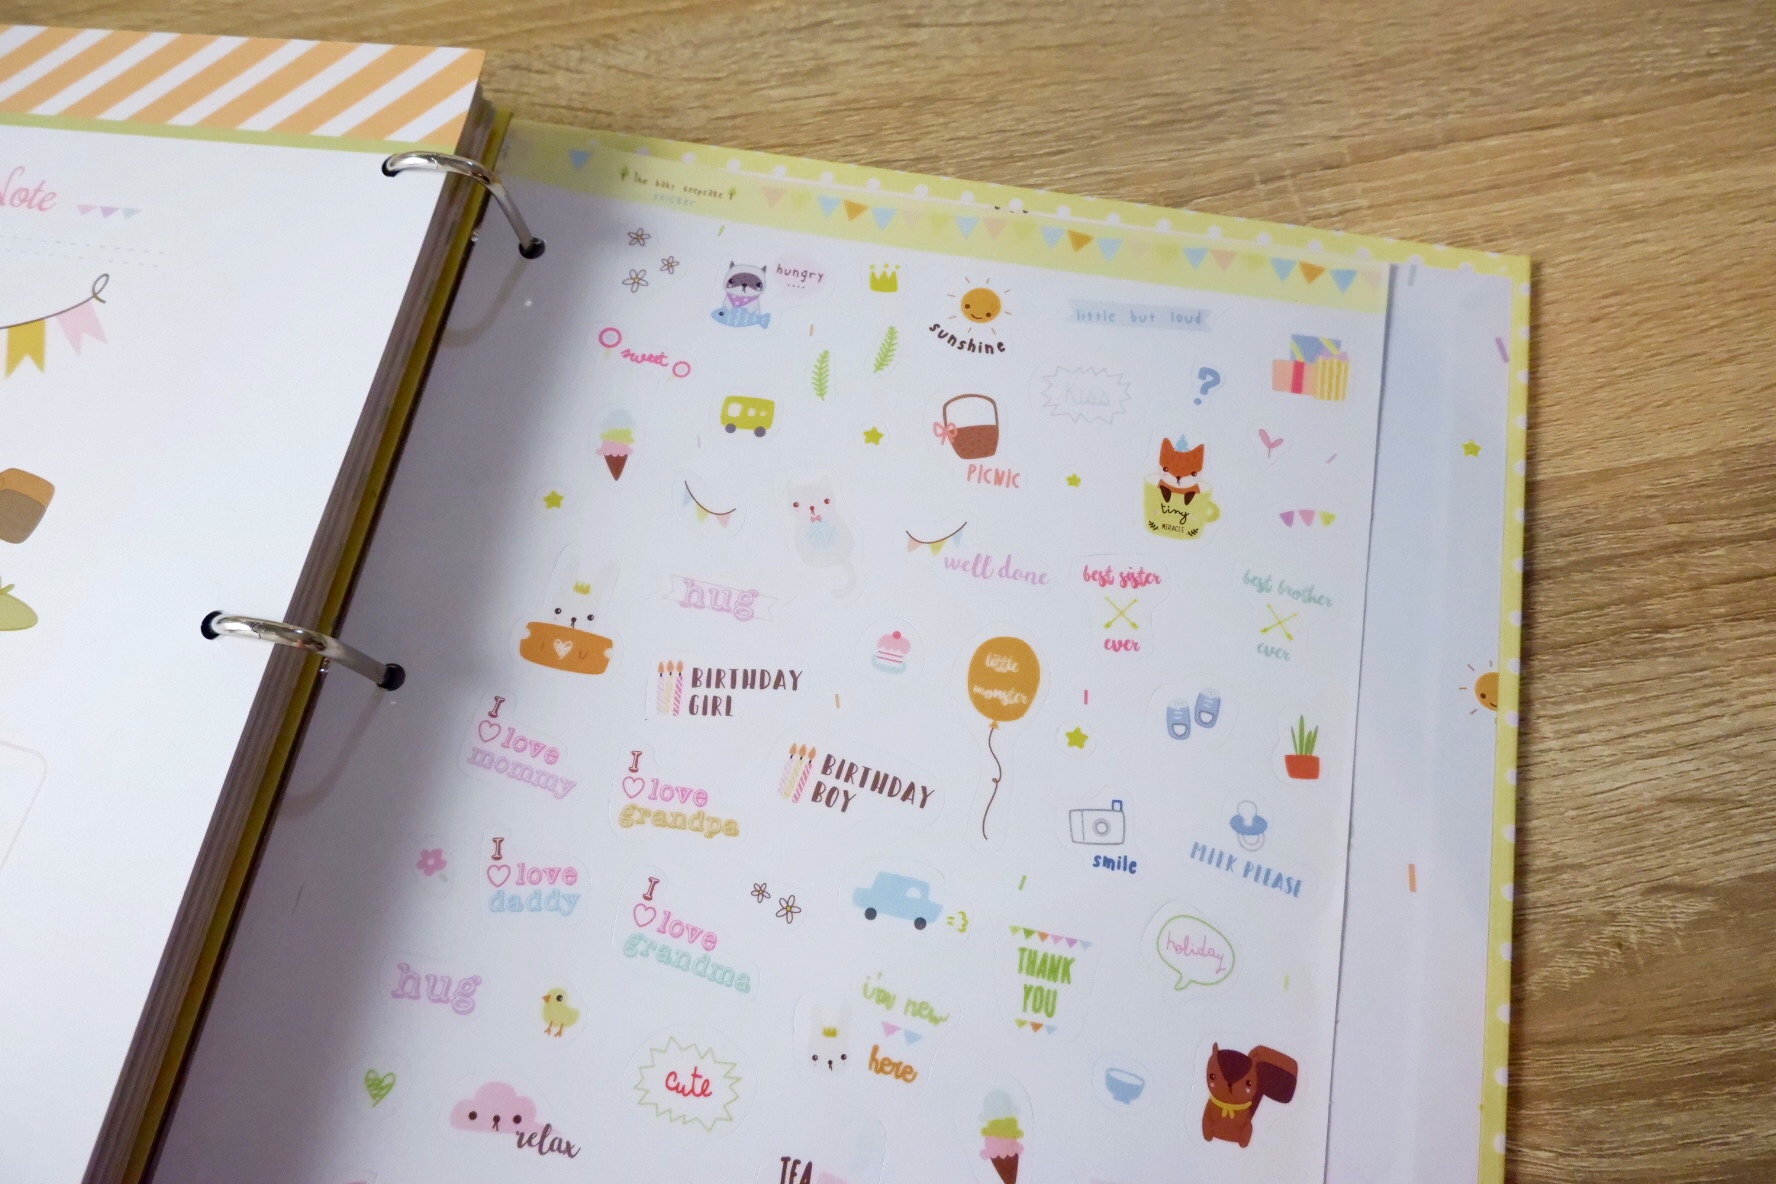 Note
The baby keepsake
sticker
hungry
....
sunshine
little but loud
sweet
kiss
?
PICNIC
tiny
MIRACLE
well done
best sister
ever
best brother
ever
hug
I U
little
monster
BIRTHDAY
GIRL
I
love
mommy
I
love
grandpa
BIRTHDAY
BOY
smile
MILK PLEASE
I
love
daddy
I
love
grandma
=3
THANK
YOU
holiday
hug
i'm new
here
cute
relax
TEA